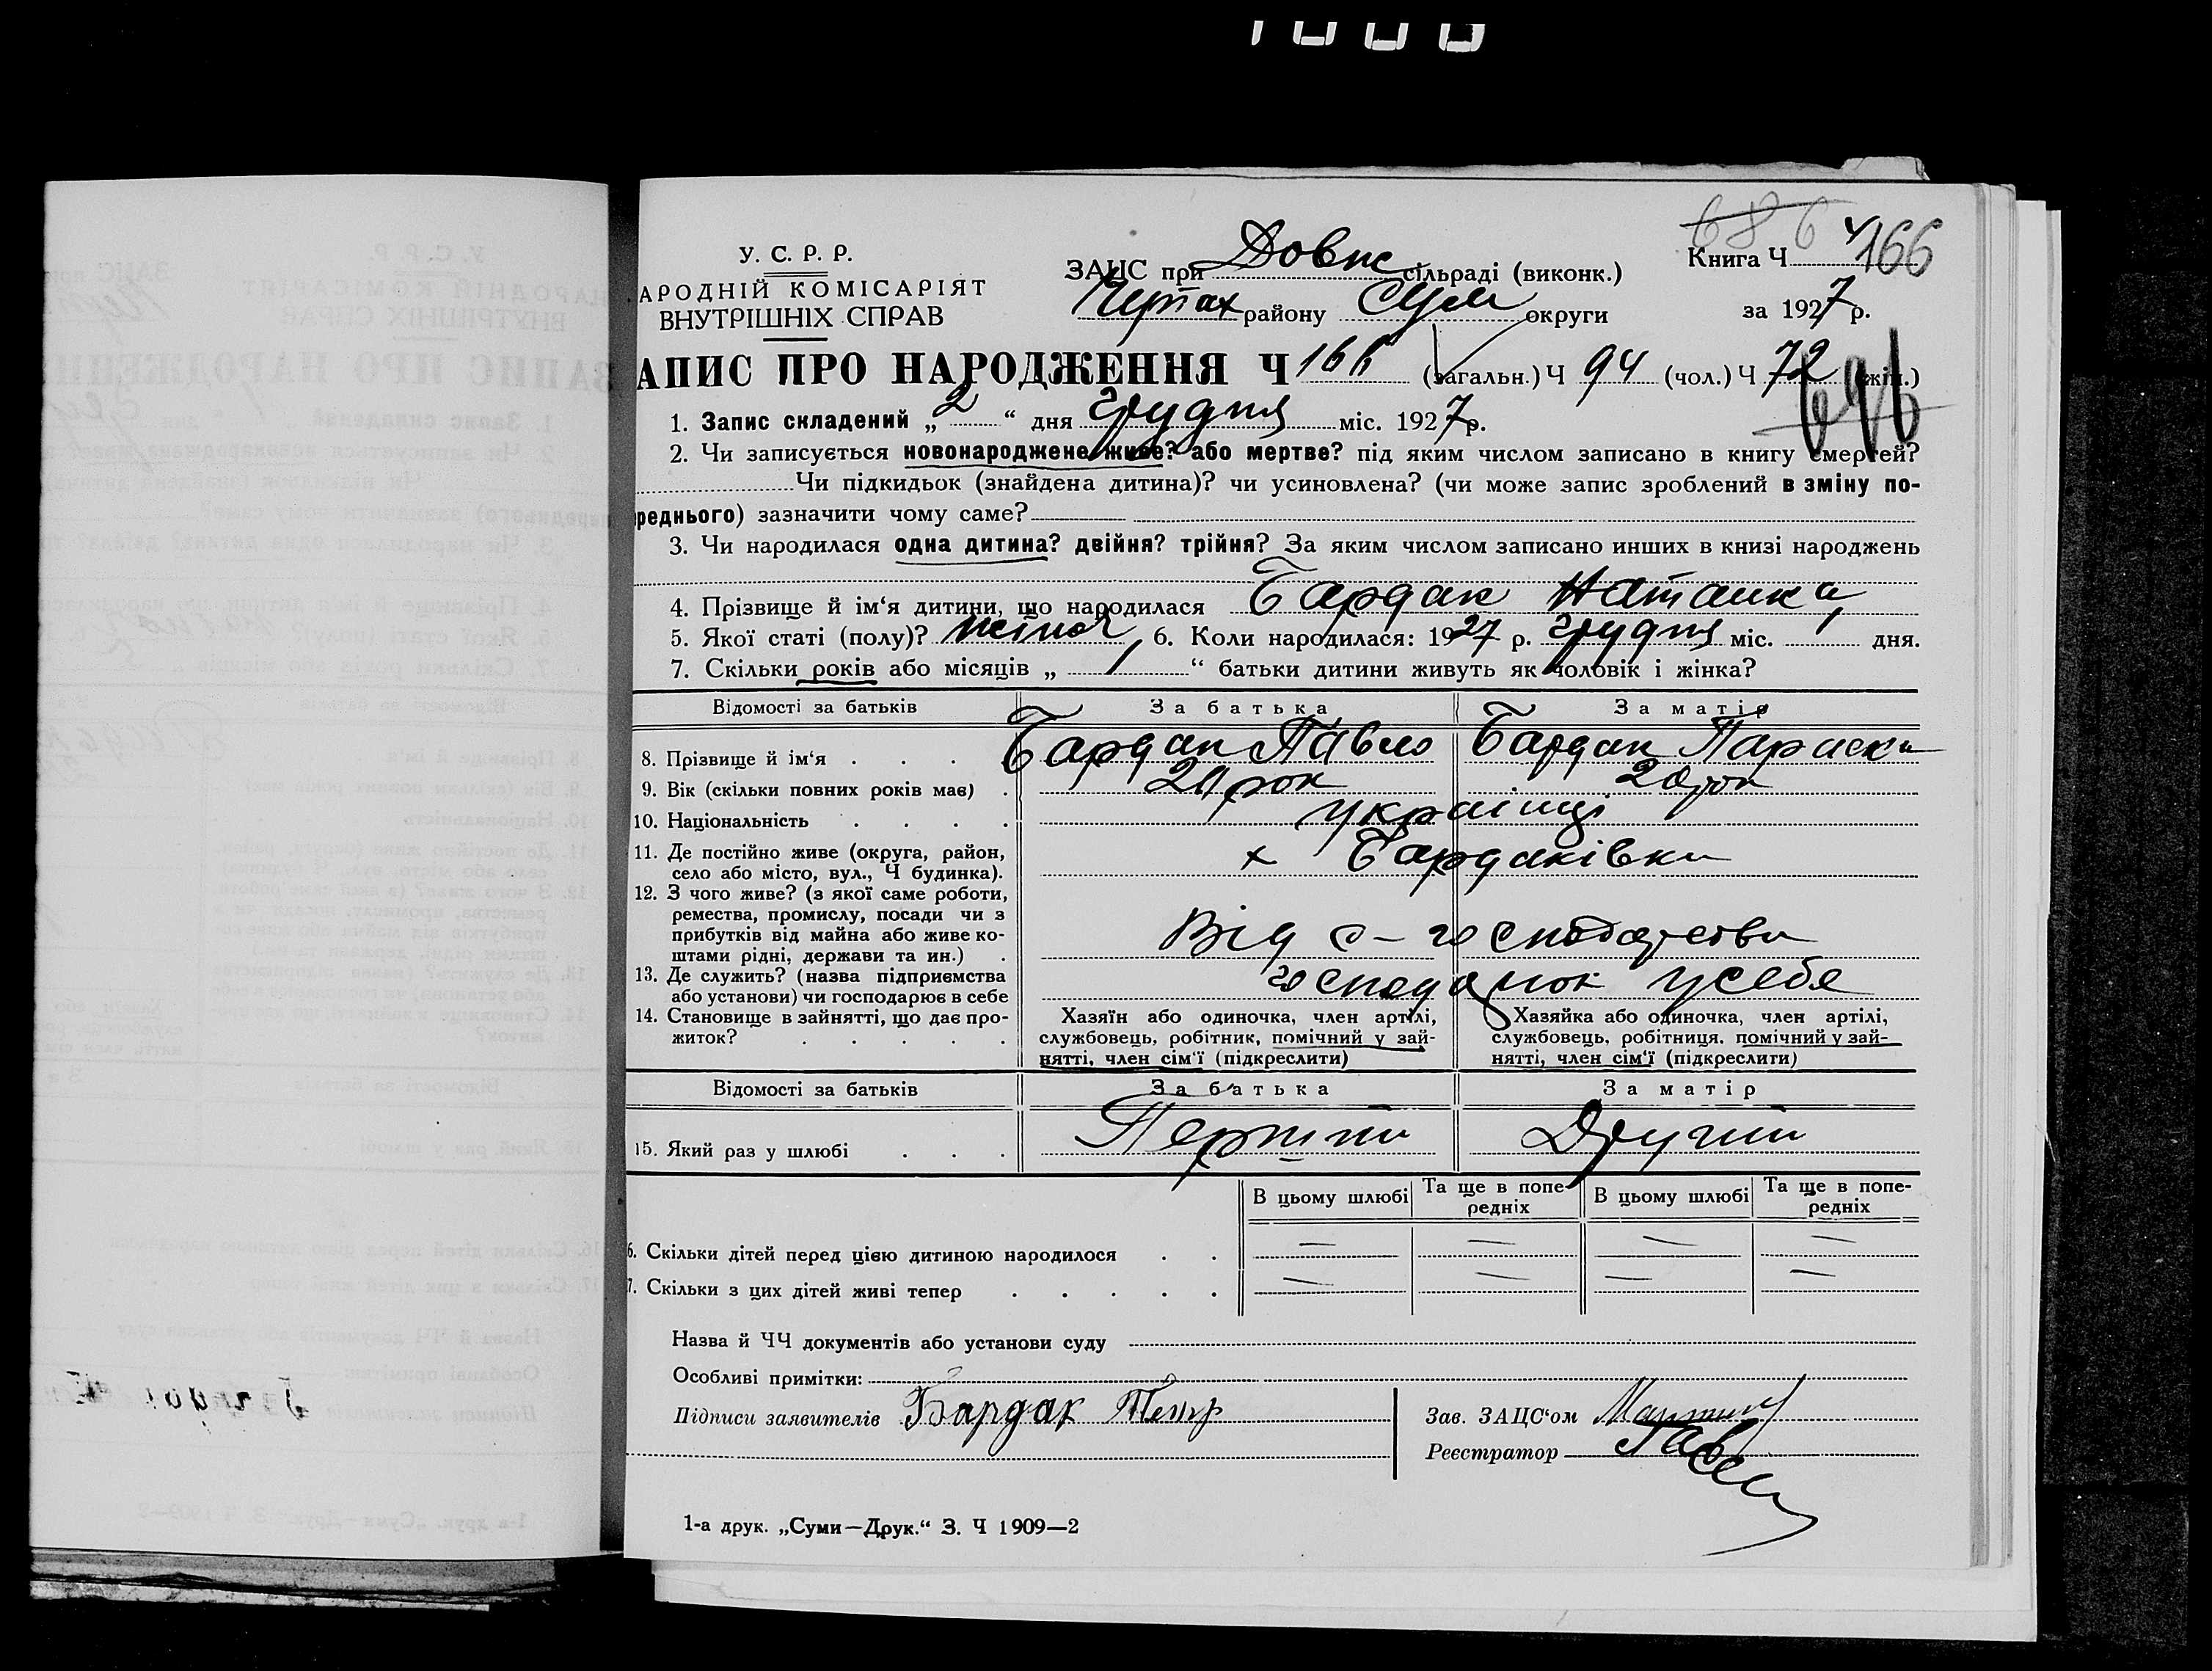 У. С. Р. Р.
АРОДНІЙ КОМІСАРІЯТ
ВНУТРІШНІХ СПРАВ
686 Ч 166
ЗАЦС при Довжс сільраді (виконк.) Книга Ч
району Сум округи за 1927 р.
АПИС ПРО НАРОДЖЕННЯ Ч 166 (загальн.) Ч 94 (чол.) Ч 72 (жін.)
1. Запис складений „ 2 “ дня грудня міс. 1927 р.
2. Чи записується новонароджене живе? або мертве? під яким числом записано в книгу смертей?
Чи підкидьок (знайдена дитина)? чи усиновлена? (чи може запис зроблений в зміну по-
реднього) зазначити чому саме?
3. Чи народилася одна дитина? двійня? трійня? За яким числом записано инших в книзі народжень
4. Прізвище й ім‘я дитини, що народилася Бардак Наталка
5. Якої статі (полу)? жіноч 6. Коли народилася: 1927 р. грудня міс. 1 дня.
7. Скільки років або місяців „ 1 “ батьки дитини живуть як чоловік і жінка?
Відомості за батьків За батька За матір
8. Прізвище й ім‘я . . . Бардак Павло Бардак Параска
9. Вік (скільки повних років має) . рок 20 рок
10. Національність . . . . українці
11. Де постійно живе (округа, район, село або місто, вул., Ч будинка). х Бардаківка
12. З чого живе? (з якої саме роботи,
ремества, промислу, посади чи з
прибутків від майна або живе ко-
штами рідні, держави та ин.) . Від с-господарства
13. Де служить? (назва підприємства
або установи) чи господарює в себе у себе
14. Становище в зайнятті, що дає про-
житок? . . . . .
Хазяїн або одиночка, член артілі,
службовець, робітник, помічний у зай-
нятті, член сім‘ї (підкреслити)
Хазяйка або одиночка, член артілі,
службовець, робітниця, помічний у зай-
нятті, член сім‘ї (підкреслити)
Відомості за батьків За батька За матір
15. Який раз у шлюбі . . . Перший Другий
В цьому шлюбі Та ще в попе-редніх В цьому шлюбі Та ще в попе-редніх
6. Скільки дітей перед цією дитиною народилося . . — — — —
7. Скільки з цих дітей живі тепер . . . . . — — — —
Назва й ЧЧ документів або установи суду
Особливі примітки:
Підписи заявителів Бардак Зав. ЗАЦС‘ом
Реєстратор
1-а друк. „Суми—Друк.“ З. Ч 1909—2